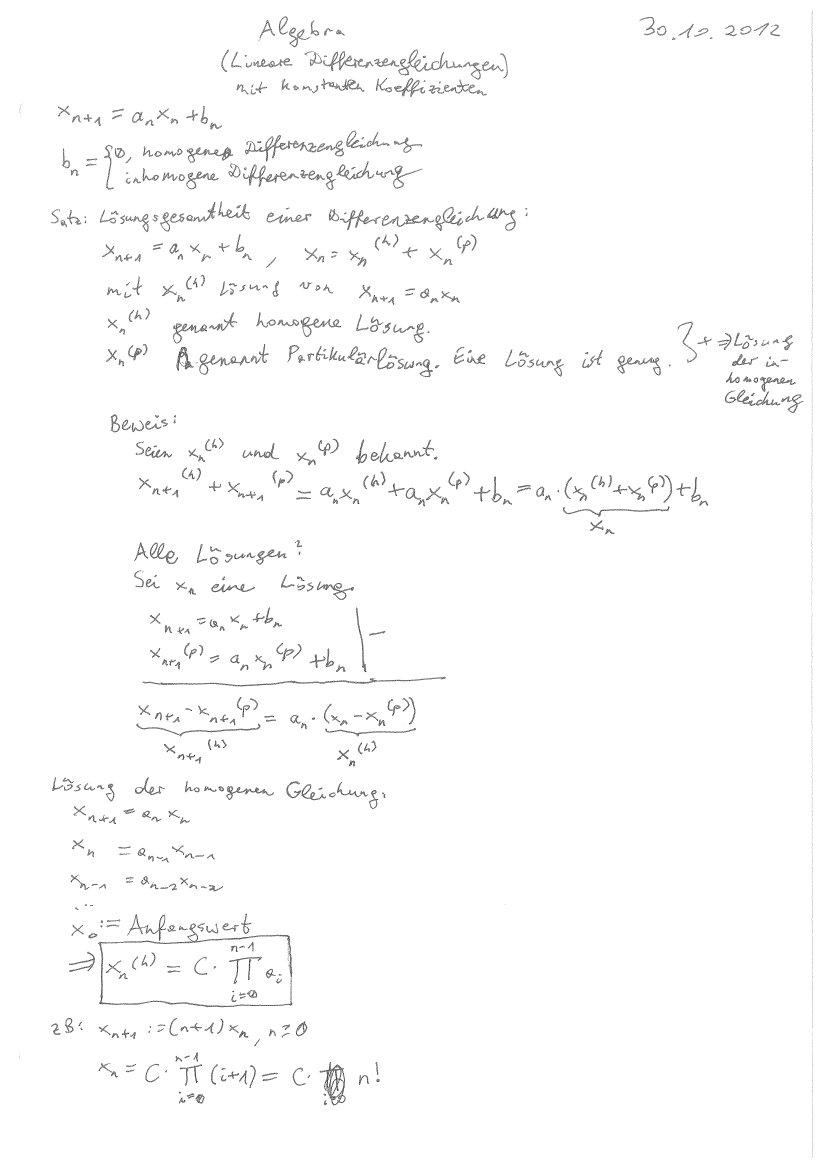 Algebra 30.10.2012
(Lineare Differenzengleichungen)
mit konstanten Koeffizienten
x_{n+1} = a_n x_n + b_n
b_n = { 0, homogene Differenzengleichung
inhomogene Differenzengleichung
Satz: Lösungsgesamtheit einer Differenzengleichung:
x_{n+1} = a_n x_n + b_n , x_n = x_n^{(h)} + x_n^{(p)}
mit x_n^{(h)} Lösung von x_{n+1} = a_n x_n
x_n^{(h)} genannt homogene Lösung.
x_n^{(p)} genannt Partikulärlösung. Eine Lösung ist genug.
} + ⇒ Lösung
der in-
homogenen
Gleichung
Beweis:
Seien x_n^{(h)} und x_n^{(p)} bekannt.
x_{n+1}^{(h)} + x_{n+1}^{(p)} = a_n x_n^{(h)} + a_n x_n^{(p)} + b_n = a_n · (x_n^{(h)} + x_n^{(p)}) + b_n
x_n
Alle Lösungen?
Sei x_n eine Lösung.
x_{n+1} = a_n x_n + b_n
x_{n+1}^{(p)} = a_n x_n^{(p)} + b_n | −
x_{n+1} − x_{n+1}^{(p)} = a_n · (x_n − x_n^{(p)})
x_{n+1}^{(h)} x_n^{(h)}
Lösung der homogenen Gleichung:
x_{n+1} = a_n x_n
x_n = a_{n−1} x_{n−1}
x_{n−1} = a_{n−2} x_{n−2}
...
x_0 := Anfangswert
⇒ x_n^{(h)} = C · ∏_{i=0}^{n−1} a_i
zB: x_{n+1} := (n+1) x_n , n ≥ 0
x_n = C · ∏_{i=0}^{n−1} (i+1) = C · n!